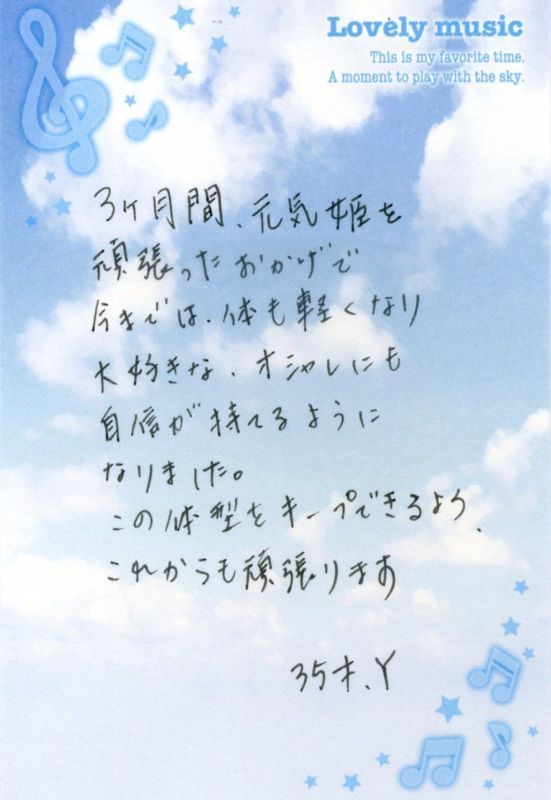 Lovely music
This is my favorite time.
A moment to play with the sky.
3ヶ月間、元気姫を
頑張ったおかげで
今までは、体も軽くなり
大好きな、オシャレにも
自信が持てるように
なりました。
この体型をキープできるよう、
これからも頑張ります
35才、Y